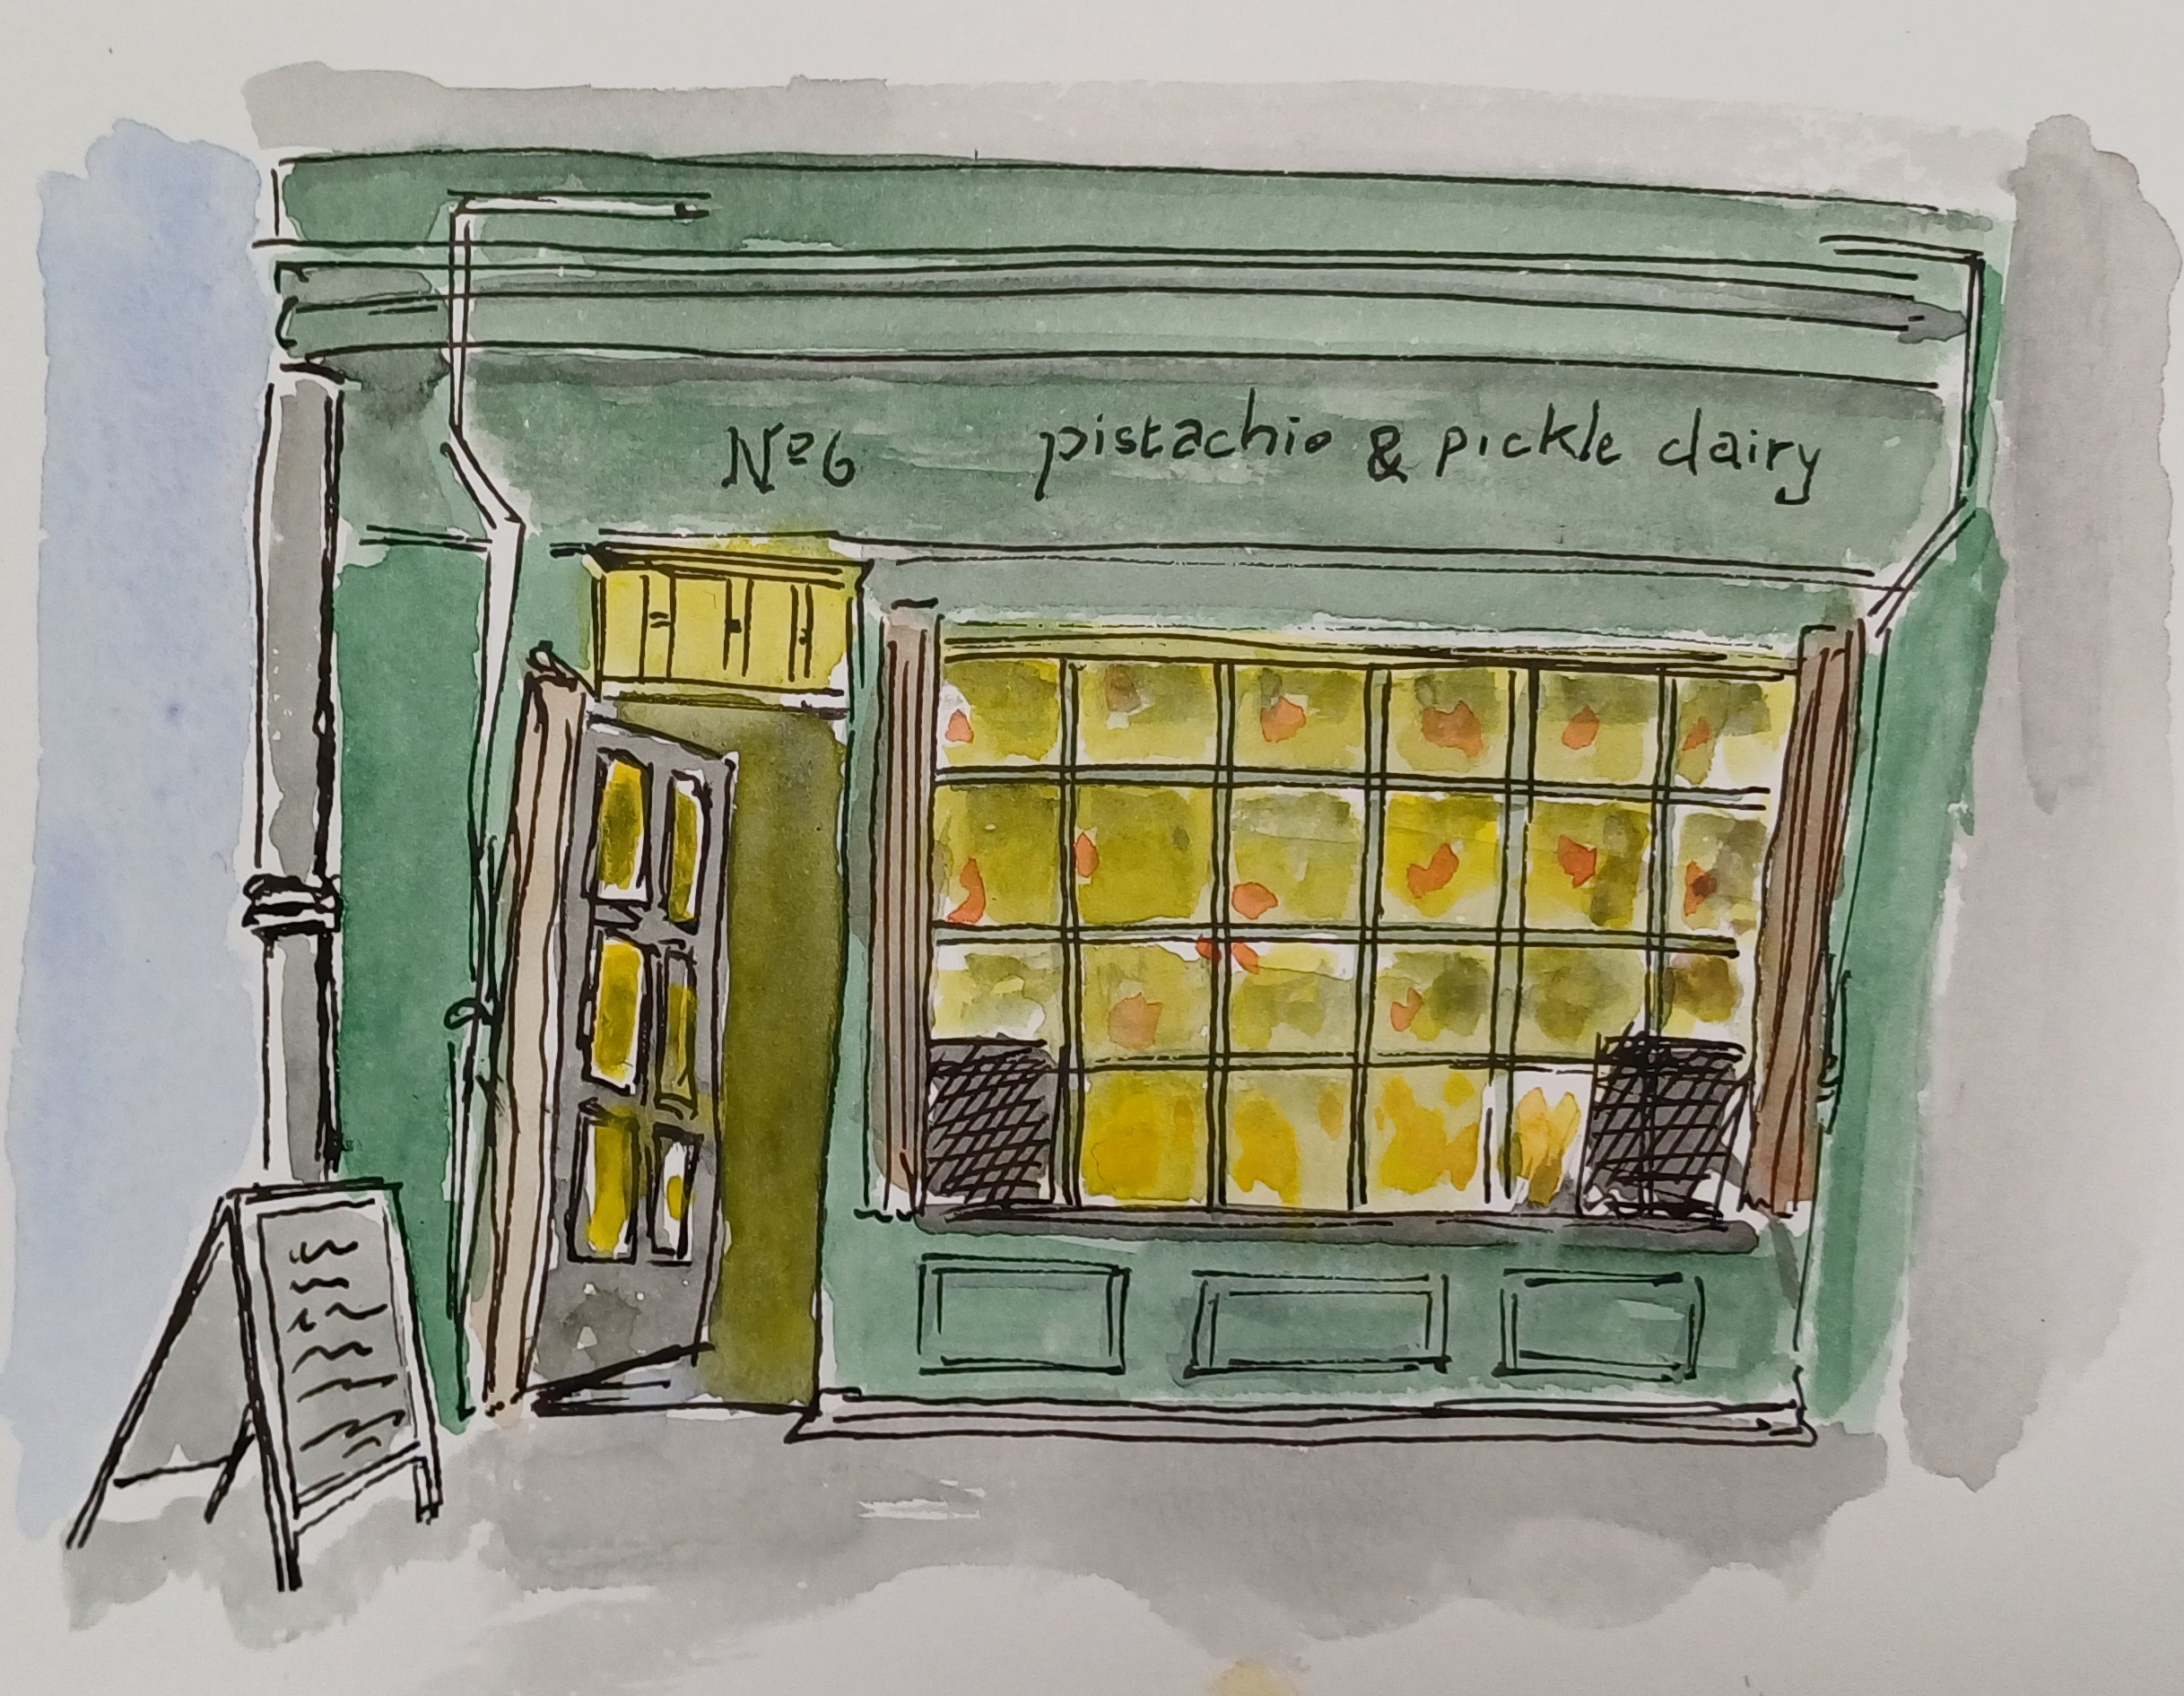 Nº6 pistachio & pickle dairy